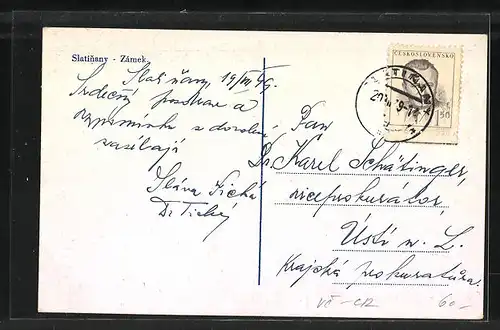 Slatiňany - Zámek
Slatiňany 19/VII 49.
Srdečný pozdrav a
vzpomínku z dovolené
zasílají
Sláva Tichá
Dr Tichý
ČESKOSLOVENSKO
1,50
Pan
Dr. Karel Schätinger,
viceprokurátor,
Ústí n. L.
Krajská prokuratura.
VČ - CR
60.-